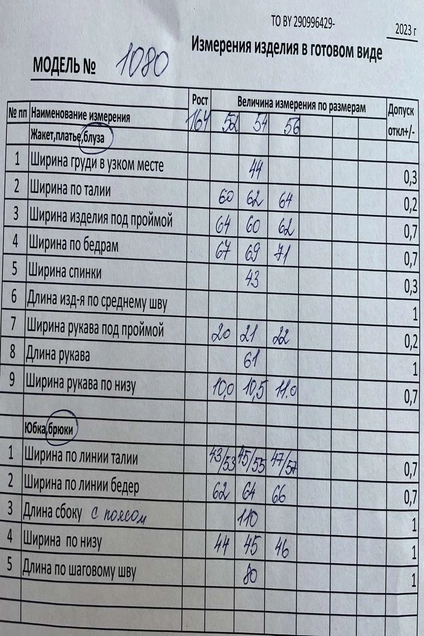 ТО BY 290996429-
2023 г
Измерения изделия в готовом виде
МОДЕЛЬ № 1080
№ пп Наименование измерения Рост Величина измерения по размерам Допуск откл+/-
164 52 54 56
Жакет,платье,блуза
1 Ширина груди в узком месте 44 0,3
2 Ширина по талии 60 62 64 0,2
3 Ширина изделия под проймой 64 60 62 0,7
4 Ширина по бедрам 67 69 71 0,7
5 Ширина спинки 43 0,3
6 Длина изд-я по среднему шву 1
7 Ширина рукава под проймой 20 21 22 0,2
8 Длина рукава 61 1
9 Ширина рукава по низу 10,0 10,5 11.0 0,7
Юбка,брюки
1 Ширина по линии талии 43/53 45/55 47/57 0,7
2 Ширина по линии бедер 62 64 66 0,7
3 Длина сбоку с поясом 110 1
4 Ширина по низу 44 45 46 1
5 Длина по шаговому шву 80 1